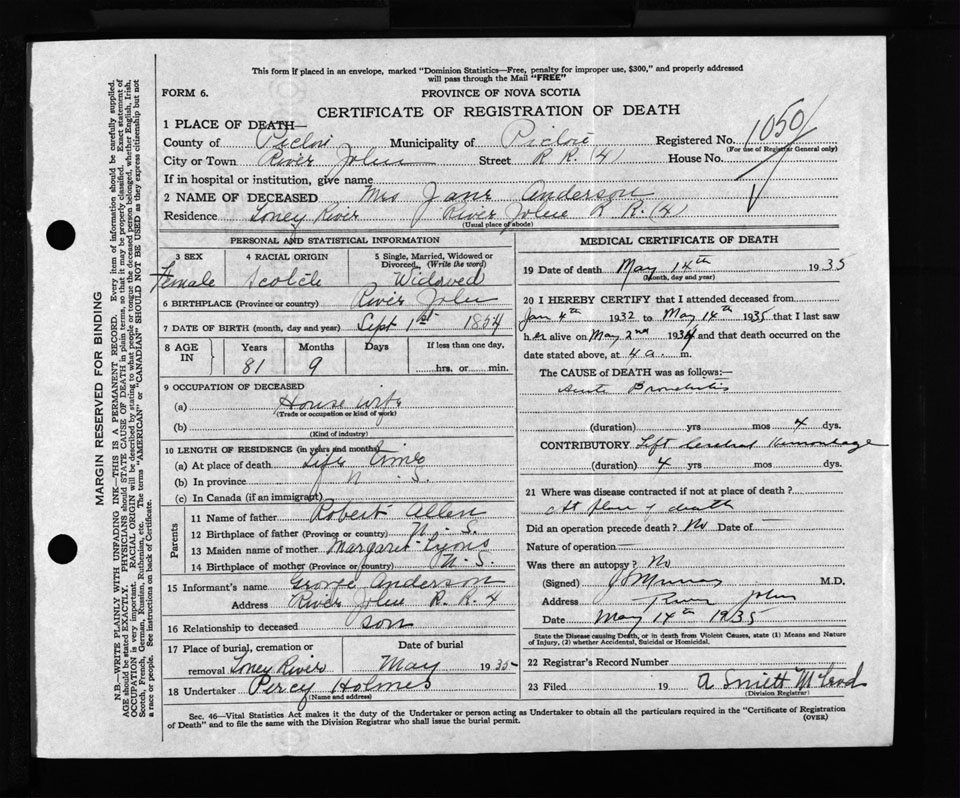 This form if placed in an envelope, marked "Dominion Statistics—Free, penalty for improper use, $300," and properly addressed
will pass through the Mail "FREE"
FORM 6.
PROVINCE OF NOVA SCOTIA
CERTIFICATE OF REGISTRATION OF DEATH
1 PLACE OF DEATH—
County of Pictou Municipality of Pictou Registered No. 1050
(For use of Registrar General only)
City or Town River John Street R R (4) House No.
If in hospital or institution, give name
2 NAME OF DECEASED Mrs Jane Anderson
Residence Toney River River John R R. (4)
(Usual place of abode)
PERSONAL AND STATISTICAL INFORMATION
3 SEX 4 RACIAL ORIGIN 5 Single, Married, Widowed or
Divorced. (Write the word)
Female Scotch Widowed
6 BIRTHPLACE (Province or country) River John
7 DATE OF BIRTH (month, day and year) Sept 1st 1854
8 AGE IN Years Months Days If less than one day,
81 9 hrs. or min.
9 OCCUPATION OF DECEASED
(a) House wife
(Trade or occupation or kind of work)
(b)
(Kind of industry)
10 LENGTH OF RESIDENCE (in years and months)
(a) At place of death Life Time
(b) In province N. S.
(c) In Canada (if an immigrant)
Parents
11 Name of father Robert Allen
12 Birthplace of father (Province or country) N. S.
13 Maiden name of mother Margaret Lyons
14 Birthplace of mother (Province or country) N. S.
15 Informant's name George Anderson
Address River John R. R. 4
16 Relationship to deceased son
17 Place of burial, cremation or Date of burial
removal Toney River May 1935
18 Undertaker Percy Holmes
(Name and address)
MEDICAL CERTIFICATE OF DEATH
19 Date of death May 14th 1935
(Month, day and year)
20 I HEREBY CERTIFY that I attended deceased from
Jan 4th 1932 to May 14th 1935 that I last saw
her alive on May 2nd 1934 and that death occurred on the
date stated above, at 4 a. m.
The CAUSE of DEATH was as follows:—
Acute Bronchitis
(duration) yrs mos 4 dys.
CONTRIBUTORY Left Cerebral Hemorrhage
(duration) 4 yrs mos dys.
21 Where was disease contracted if not at place of death?
At place of death
Did an operation precede death? No Date of —
Nature of operation —
Was there an autopsy? No
(Signed) J Murray M.D.
Address River John
Date May 14th 1935
State the Disease causing Death, or in death from Violent Causes, state (1) Means and Nature
of Injury, (2) whether Accidental, Suicidal or Homicidal.
22 Registrar's Record Number
23 Filed 19
(Division Registrar)
Sec. 46—Vital Statistics Act makes it the duty of the Undertaker or person acting as Undertaker to obtain all the particulars required in the "Certificate of Registration
of Death" and to file the same with the Division Registrar who shall issue the burial permit.
(OVER)
MARGIN RESERVED FOR BINDING
N.B.—WRITE PLAINLY WITH UNFADING INK—THIS IS A PERMANENT RECORD. Every item of information should be carefully supplied.
AGE should be stated EXACTLY. PHYSICIANS should STATE CAUSE OF DEATH in plain terms, so that it may be properly classified. Exact statement of
OCCUPATION is very important. RACIAL ORIGIN will be described by stating to what people or tongue the deceased person belonged, whether English, Irish,
Scotch, French, German, Russian, Ruthenian, etc. The terms "AMERICAN" or "CANADIAN" SHOULD NOT BE USED as they express citizenship but not
a race or people. See instructions on back of Certificate.